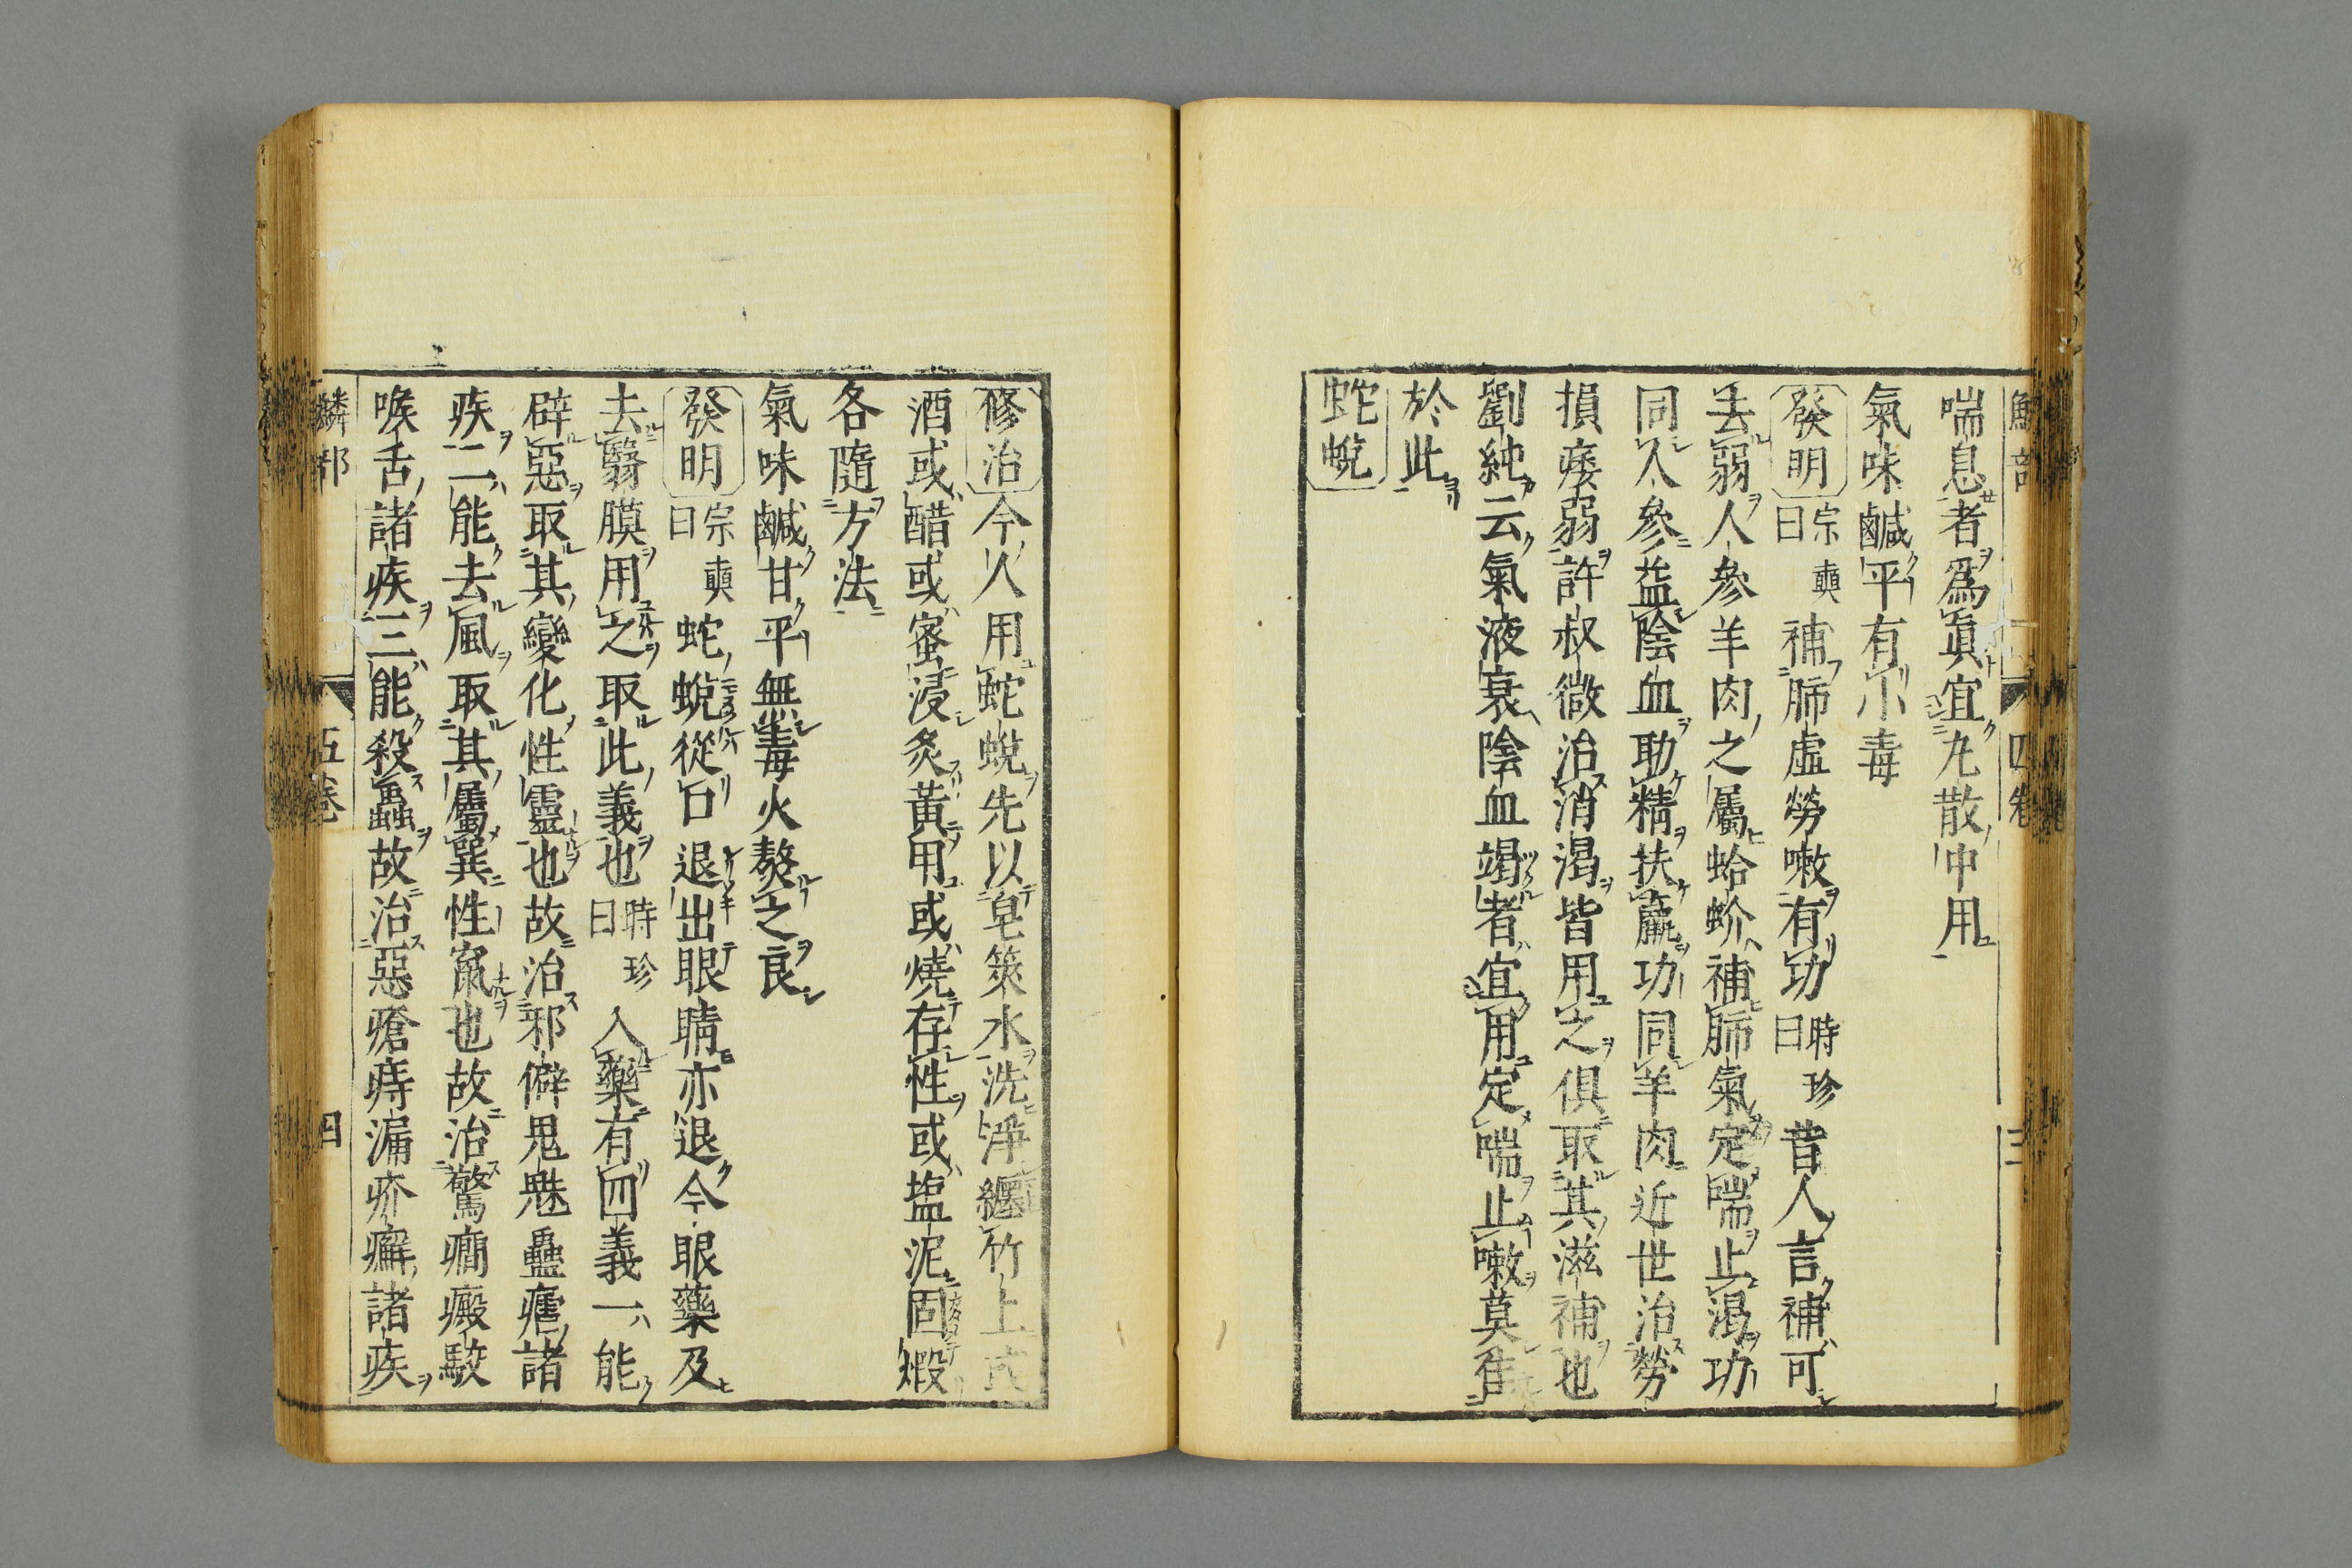 喘息者爲眞宜丸散中用
氣味鹹平有小毒
發明宗奭曰補肺虛勞嗽有功時珍曰昔人言補可
去弱人參羊肉之屬蛤蚧補肺氣定喘止渴功
同人參益陰血助精扶羸功同羊肉近世治勞
損痿弱許叔微治消渴皆用之俱取其滋補也
劉純云氣液衰陰血竭者宜用定喘止嗽莫佳
於此
蛇蛻
修治今人用蛇蛻先以皂莢水洗淨纏竹上或
酒或醋或蜜浸炙黃用或燒存性或塩泥固煅
各隨方法
氣味鹹甘平無毒火熬之良
發明宗奭曰蛇蛻從口退出眼睛亦退今眼藥及
去翳膜用之取此義也時珍曰入藥有四義一能
辟惡取其變化性靈也故治邪僻鬼魅蠱瘧諸
疾二能去風取其屬巽性竄也故治驚癎癜駮
喉舌諸疾三能殺蟲故治惡瘡痔漏疥癬諸疾
鱗部 五卷 四